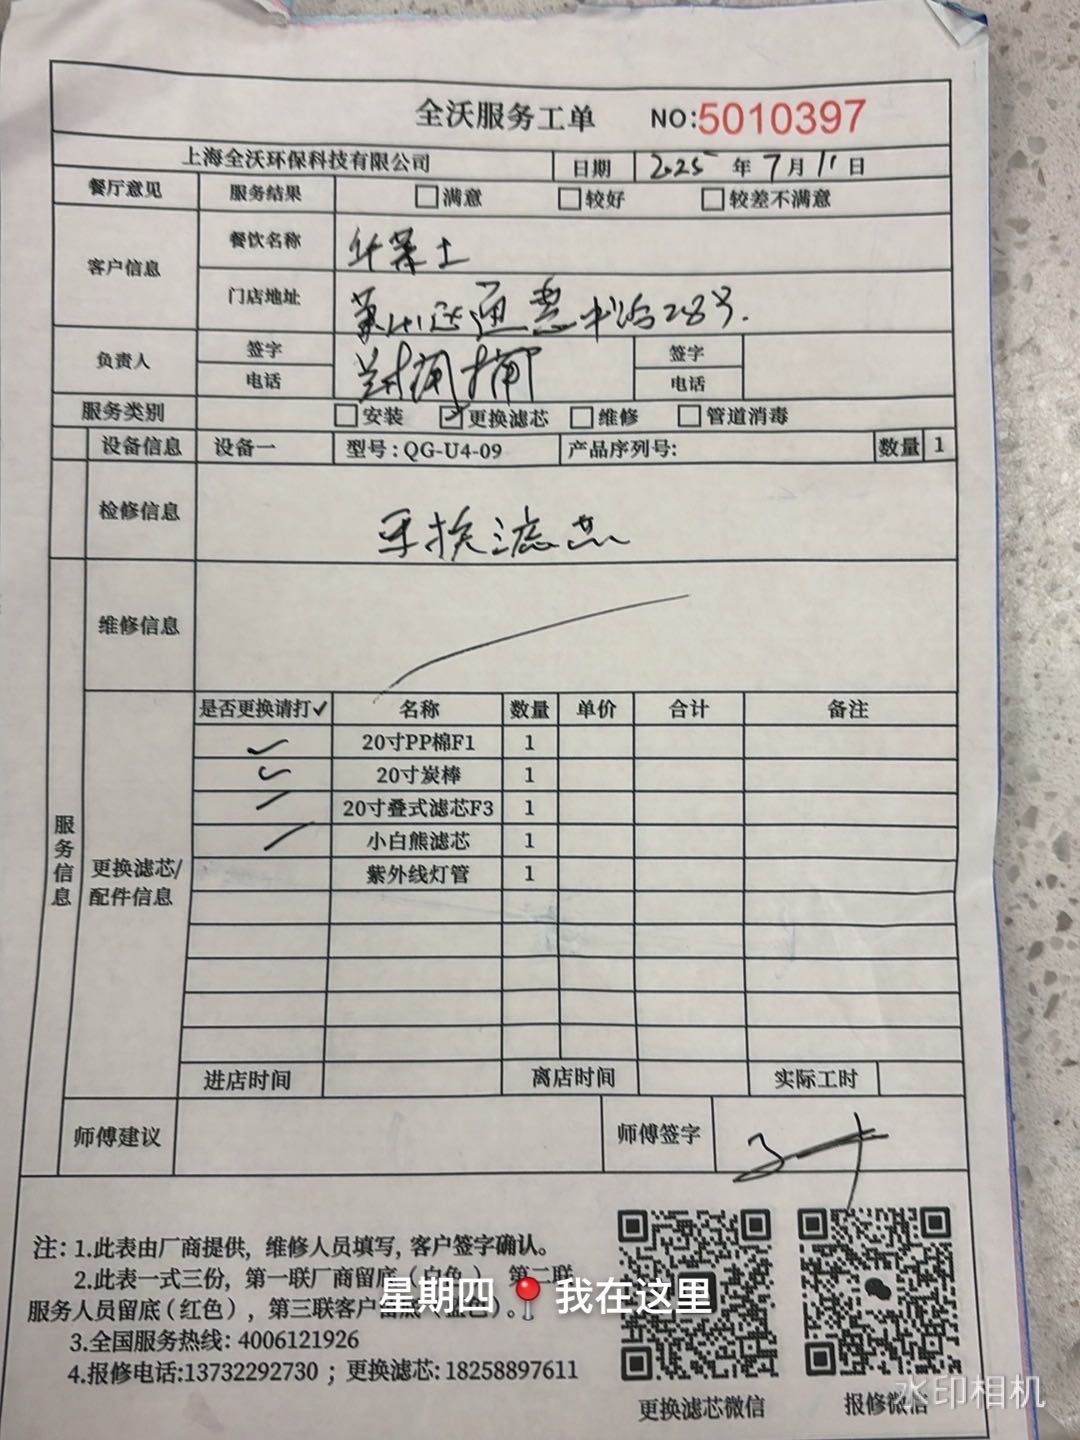 全沃服务工单 NO:5010397
上海全沃环保科技有限公司 日期 2025 年 7 月 11 日
餐厅意见 服务结果 □满意 □较好 □较差不满意
客户信息 餐饮名称 华莱士
门店地址 通惠中路283号.
负责人 签字 签字
电话 电话
服务类别 □安装 ☑更换滤芯 □维修 □管道消毒
设备信息 设备一 型号:QG-U4-09 产品序列号: 数量 1
检修信息 更换滤芯
维修信息
服务信息
更换滤芯/配件信息
是否更换请打✓ 名称 数量 单价 合计 备注
✓ 20寸PP棉F1 1
✓ 20寸炭棒 1
✓ 20寸叠式滤芯F3 1
✓ 小白熊滤芯 1
紫外线灯管 1
进店时间 离店时间 实际工时
师傅建议 师傅签字
注: 1.此表由厂商提供, 维修人员填写, 客户签字确认。
2.此表一式三份, 第一联厂商留底(白色), 第二联
服务人员留底(红色), 第三联客户留底(蓝色)。
星期四 📍 我在这里
3.全国服务热线: 4006121926
4.报修电话:13732292730 ; 更换滤芯: 18258897611
更换滤芯微信 报修微信
水印相机